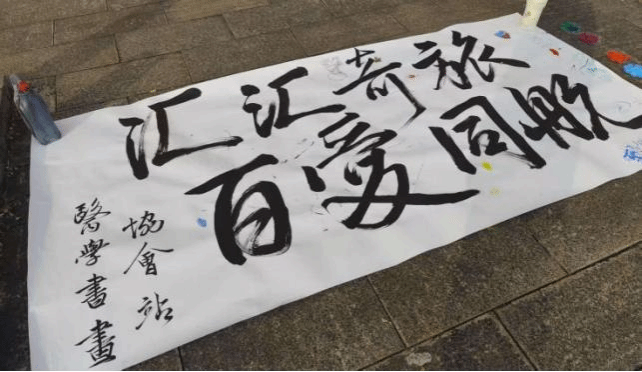 汇汇奇旅
百爱同航
醫學書畫
協會站